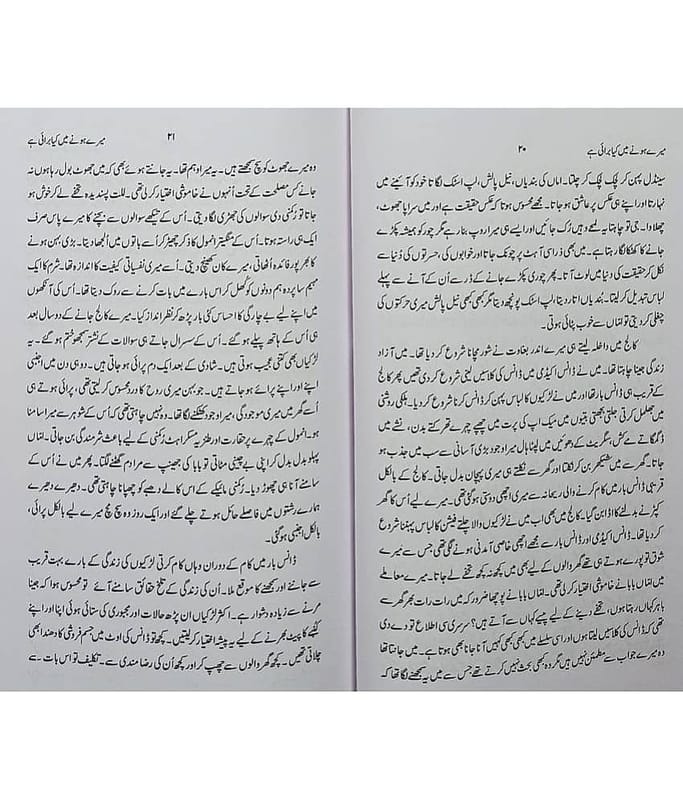 میرے ہونے میں کیا برائی ہے ۲۰
سینڈل پہن کر لچک لچک کر چلتا۔ اماں کی بندیاں، نیل پالش، لپ اسٹک لگاتا خود کو آئینے میں
نہارتا اور اپنے ہی عکس پر عاشق ہو جاتا۔ مجھے محسوس ہوتا کہ عکس حقیقت ہے اور میں سراپا جھوٹ،
چھلاوا۔ جی تو چاہتا سہ لمحے وہیں رک جائیں اور ایسی ہی میرا روپ بنا رہے مگر چور کو ہمیشہ پکڑے
جانے کا کھٹکا لگا رہتا ہے۔ میں بھی ذرا سی آہٹ پر چونک جاتا اور خوابوں کی، حسرتوں کی دُنیا سے
نکل کر حقیقت کی دنیا میں لوٹ آتا۔ پھر چوری پکڑے جانے کے ڈر سے اُن کے آنے سے پہلے
لباس تبدیل کر لیتا۔ بندیاں اتار دیتا، لپ اسٹک پونچھ دیتا مگر کبھی کبھی نیل پالش میری حرکتوں کی
چغلی کر دیتی تو امّاں خوب پٹائی ہوتی۔
کالج میں داخلہ لیتے ہی میرے اندر بغاوت نے شور مچانا شروع کر دیا تھا۔ میں آزاد
زندگی جینا چاہتا تھا۔ میں نے ڈانس اکیڈمی میں ڈانس کی کلاسیں لینی شروع کر دی تھیں پھر کالج
کے قریب ہی ڈانس بار تھا اور میں نے لڑکیوں کا لباس پہن کر ڈانس کرنا شروع کر دیا۔ ہلکی روشنی
میں جھلمل کرتی جلتی بجھتی بتیوں میں میک اپ کی پرت میں چھپے چہرے تھرکتے بدن، نشے میں
ڈگمگاتے کش، سگریٹ کے دھوئیں میں لپٹا ہال میرا وجود بڑی آسانی سے سب میں جذب ہو
جاتا۔ گھر سے میں شیکھر بن کر نکلتا اور گھر سے نکلتے ہی میری پہچان بدل جاتی۔ کالج کے بالکل
قریبی ڈانس بار میں کام کرنے والی ریحانہ سے میری اچھی دوستی ہوگئی تھی۔ میرے لیے اُس کا گھر
کپڑے بدلنے کا اڈا بن گیا۔ کالج میں بھی اب میں نے لڑکیوں والا چلتے فیشن کا لباس پہننا شروع
کر دیا تھا۔ ڈانس اکیڈمی اور ڈانس بار سے مجھے اچھی خاصی آمدنی ہونے لگی تھی جس سے میرے
شوق تو پورے ہی تھے گھر والوں کے لیے بھی میں کچھ نہ کچھ تحفے لے جاتا۔ میرے معاملے
میں امّاں بابا نے خاموشی اختیار کرلی تھی۔ امّاں بابا نے پوچھا ضرور کہ میں رات رات بھر گھر سے
باہر کہاں رہتا ہوں، تحفے دینے کے لیے پیسے کہاں سے آتے ہیں؟ سرسری سی اطلاع تو دے دی
تھی کہ ڈانس کی کلاسیں لیتا ہوں اور اسی سلسلے میں کبھی کبھی کہیں آنا جانا بھی ہوتا ہے۔ میں جانتا تھا
وہ میرے جواب سے مطمئن نہیں ہیں مگر وہ کبھی بحث نہیں کرتے تھے جس سے میں یہ سمجھنے لگا تھا کہ
۲۱ میرے ہونے میں کیا برائی ہے
وہ میرے جھوٹ کو سچ سمجھتے ہیں۔ یہ میرا وہم تھا۔ یہ جانتے ہوئے بھی کہ میں جھوٹ بول رہا ہوں نہ
جانے کس مصلحت کے تحت اُنہوں نے خاموشی اختیار کرلی تھی۔ للت پسندیدہ تحفے لے کر خوش ہو
جاتا تو رُکمنی دی سوالوں کی جھڑی لگا دیتی۔ اُس کے تیکھے سوالوں سے بچنے کا میرے پاس صرف
ایک ہی راستہ ہوتا۔ اُس کے منگیتر انمول کا ذکر چھیڑ کر اُسے باتوں میں اُلجھا دیتا۔ بڑی بہن ہونے
کا بھرپور فائدہ اُٹھاتی، میرے کان کھینچ دیتی۔ اُسے میری نفسیاتی کیفیت کا اندازہ تھا۔ شرم کا ایک
مہم سا پردہ ہم دونوں کو کُھل کر اس بارے میں بات کرنے سے روک دیتا تھا۔ اُس کی آنکھوں
میں اپنے لیے بے چارگی کا احساس کئی بار پڑھ کر نظر انداز کیا۔ میرے کالج جانے کے دو سال بعد
ہی اُس کے ہاتھ پیلے ہو گئے۔ اُس کے سسرال جاتے ہی سوالات کے نشتر سمجھو ختم ہو گئے۔ یہ
لڑکیاں بھی کتنی عجیب ہوتی ہیں۔ شادی کے بعد ایک دم پرائی ہو جاتی ہیں۔ دو ہی دن میں اجنبی
اپنے اور اپنے پرائے ہو جاتے ہیں۔ جو بہن میری روح کا درد محسوس کر لیتی تھی، پرائی ہوتے ہی
اُسے گھر میں میری موجودگی، میرا وجود کھٹکنے لگا تھا۔ وہ نہیں چاہتی تھی کہ اُس کے شوہر سے میرا سامنا
ہو۔ انمول کے چہرے پر حقارت اور طنزیہ مسکراہٹ رُکمنی کے لیے باعث شرمندگی بن جاتی۔ امّاں
پہلو بدل بدل کر اپنی بے چینی مٹاتی تو بابا کی جھینپ سے مرا دم گھٹنے لگتا۔ پھر میں نے اُس کے
سامنے آنا ہی چھوڑ دیا۔ رُکمنی مائیکے کے اس کالے دھبے کو چھپانا چاہتی تھی۔ دھیرے دھیرے
ہمارے رشتوں میں فاصلے حائل ہوتے چلے گئے اور ایک روز وہ سچ مچ میرے لیے بالکل پرائی،
بالکل اجنبی ہو گئی۔
ڈانس بار میں کام کے دوران وہاں کام کرتی لڑکیوں کی زندگی کے بارے بہت قریب
سے جاننے اور سمجھنے کا موقع ملا۔ اُن کی زندگی کے تلخ حقائق سامنے آئے تو محسوس ہوا کہ جینا
مرنے سے زیادہ دشوار ہے۔ اکثر لڑکیاں ان پڑھ حالات اور مجبوری کی ستائی ہوئی اپنا اور اپنے
کُنبے کا پیٹ بھرنے کے لیے یہ پیشہ اختیار کر لیتیں۔ کچھ تو ڈانس کی اوٹ میں جسم فروشی کا دھندا بھی
چلاتی تھیں۔ کچھ گھر والوں سے چھپ کر اور کچھ اُن کی رضامندی سے۔ تکلیف تو اس بات سے